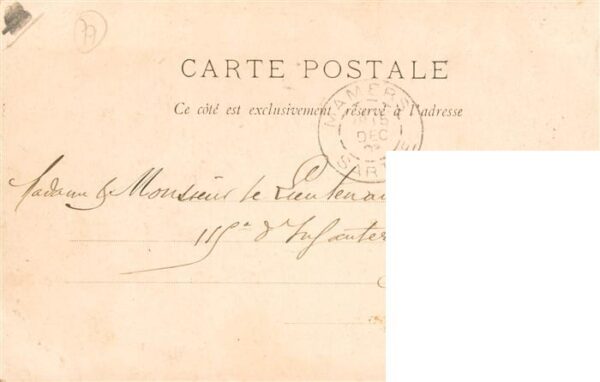 77
CARTE POSTALE
Ce côté est exclusivement réservé à l'adresse
MAMERS
15
DEC
SART
Madame & Monsieur le Lieutena
115e d'Infanter